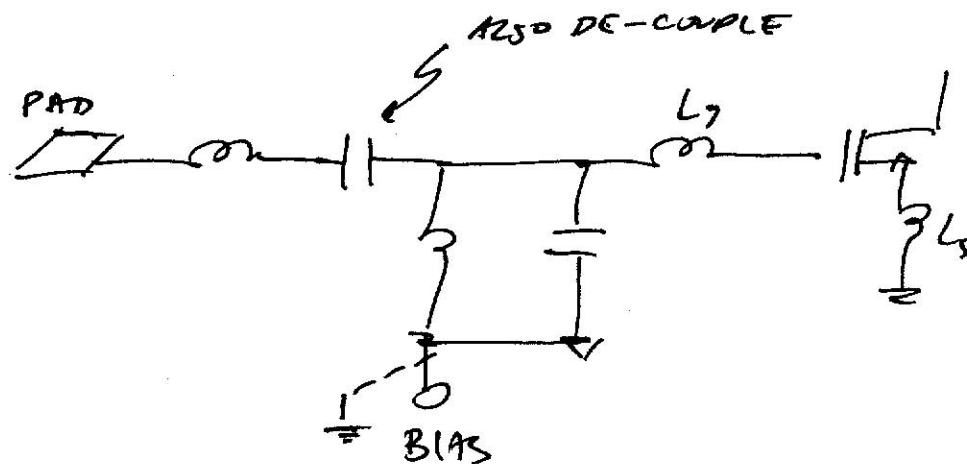 ALSO DE-COUPLE
PAD
Lg
Ls
BIAS